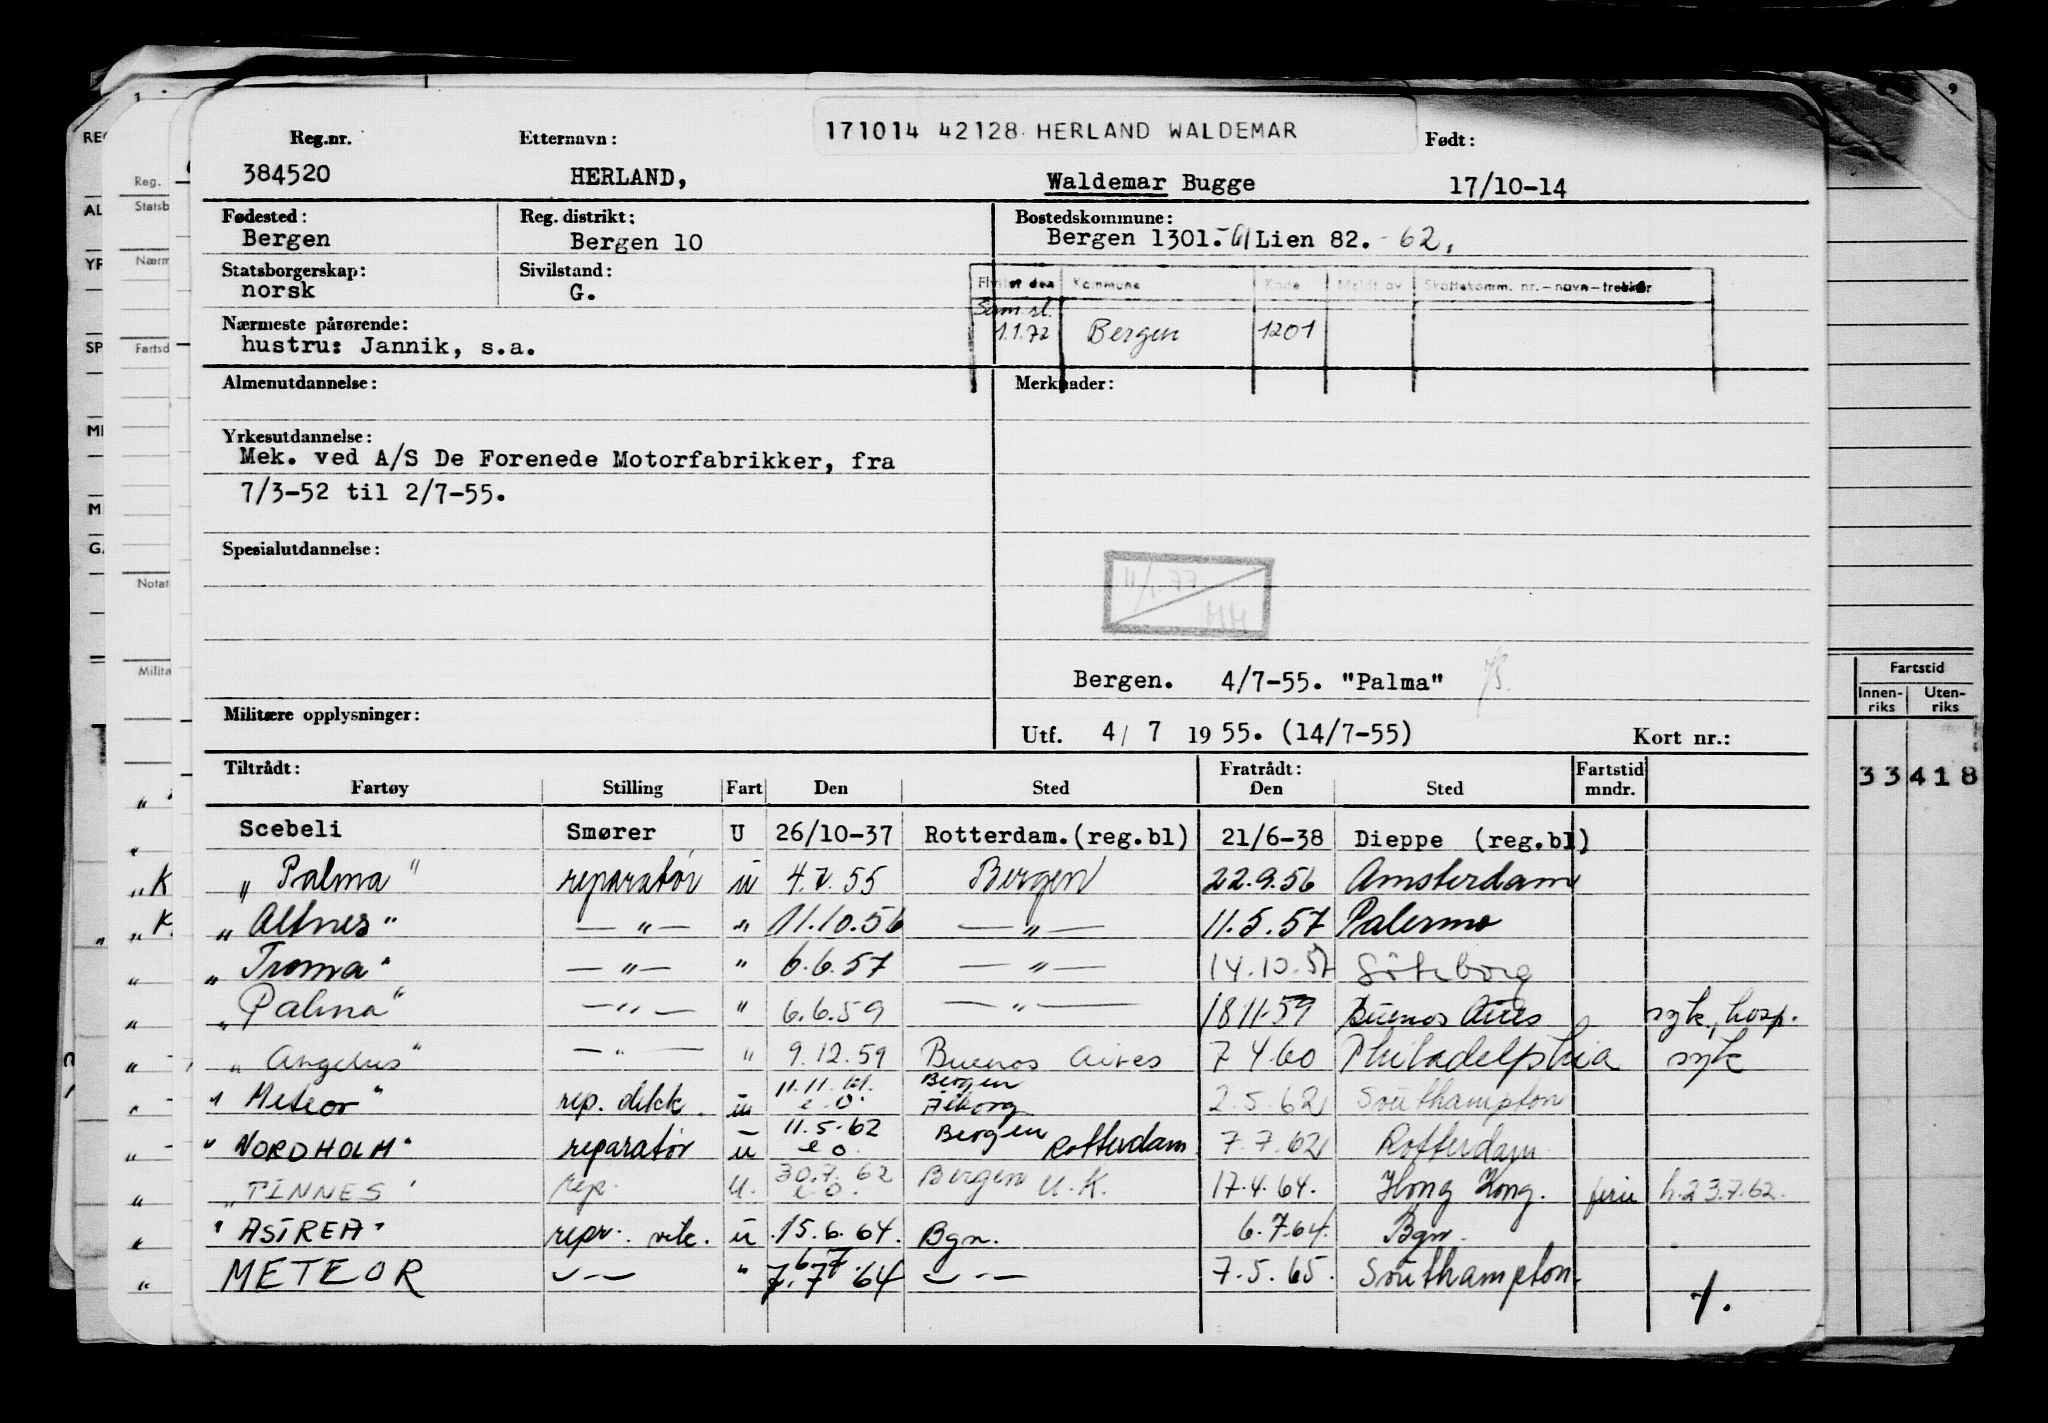 171014 42128 HERLAND WALDEMAR
Reg.nr. Etternavn: Født:
384520 HERLAND, Waldemar Bugge 17/10-14
Fødested: Reg. distrikt: Bostedskommune:
Bergen Bergen 10 Bergen 1301.-61 Lien 82.-62.
Statsborgerskap: Sivilstand:
norsk G.
Flyttet den Kommune Kode Meldt av Skattekomm. nr.-navn-trekker
Sam.sl.
1.1.72 Bergen 1201
Nærmeste pårørende:
hustru: Jannik, s.a.
Almenutdannelse: Merknader:
Yrkesutdannelse:
Mek. ved A/S De Forenede Motorfabrikker, fra
7/3-52 til 2/7-55.
Spesialutdannelse:
11/1.77
Bergen. 4/7-55. "Palma"
Militære opplysninger:
Utf. 4/7 1955. (14/7-55) Kort nr.:
Tiltrådt: Fratrådt: Fartstid
Fartøy Stilling Fart Den Sted Den Sted mndr.
Scebeli Smører U 26/10-37 Rotterdam.(reg.bl) 21/6-38 Dieppe (reg.bl)
„ Palma " reparatør u 4.7.55 Bergen 22.9.56 Amsterdam
„ Altnes " — " — " 11.10.56 — " — 11.5.57 Palermo
„ Troma " — " — " 6.6.57 — " — 14.10.57 Göteborg
„ Palma " — " — " 6.6.59 — " — 18.11.59 Buenos Aires syk., hosp.
„ Angelus " — " — " 9.12.59 Buenos Aires 7.4.60 Philadelphia syk
11.11.61. Bergen
" Meteor " rep. dekk. u e.o. Ålborg 2.5.62 Southampton
11.5.62 Bergen
" NORDHOLM " reparatør u e o. Rotterdam 7.7.62 Rotterdam
30.7.62 Bergen
„ TINNES " rep. u. e.o. U.K. 17.4.64. Hong Kong. ferie h.23.7.62.
" ASTREA " repr. u 15.6.64. Bgn. 6.7.64. Bgn.
METEOR — " — " 7.7.64 — " — 7.5.65. Southampton.
1.
Fartstid
Innen- Uten-
riks riks
33418
REG
Reg.
Statsb
AL
YR
Nærm
SP
Fartsd
Notat
Milita